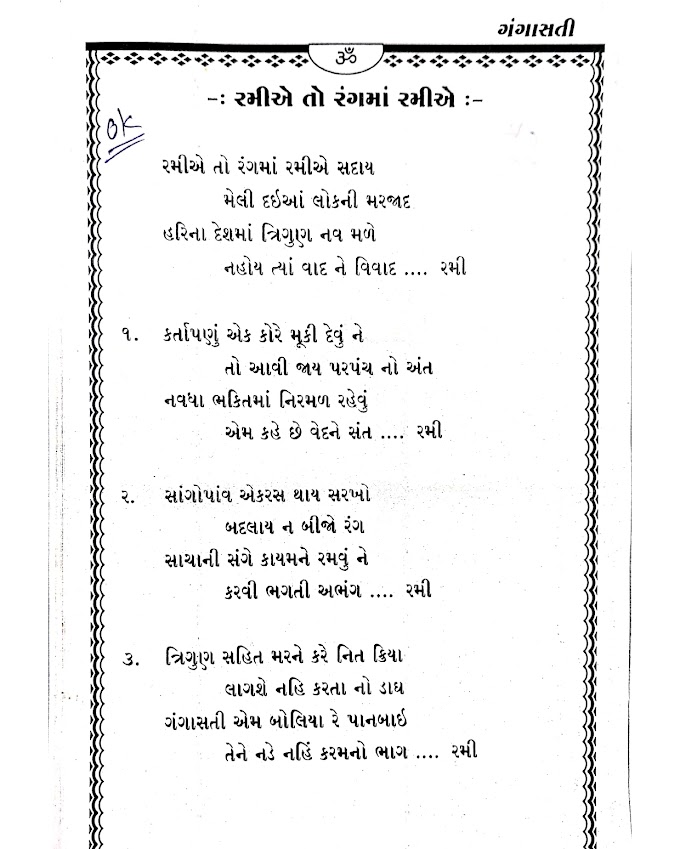 ગંગાસતી
ૐ
-: રમીએ તો રંગમાં રમીએ :-
ok
રમીએ તો રંગમાં રમીએ સદાય
મેલી દઇઆં લોકની મરજાદ
હરિના દેશમાં ત્રિગુણ નવ મળે
નહોય ત્યાં વાદ ને વિવાદ .... રમી
૧. કર્તાપણું એક કોરે મૂકી દેવું ને
તો આવી જાય પરપંચ નો અંત
નવધા ભકિતમાં નિરમળ રહેવું
એમ કહે છે વેદને સંત .... રમી
૨. સાંગોપાંવ એકરસ થાય સરખો
બદલાય ન બીજો રંગ
સાચાની સંગે કાયમને રમવું ને
કરવી ભગતી અભંગ .... રમી
૩. ત્રિગુણ સહિત મરને કરે નિત ક્રિયા
લાગશે નહિ કરતા નો ડાઘ
ગંગાસતી એમ બોલિયા રે પાનબાઇ
તેને નડે નહિં કરમનો ભાગ .... રમી